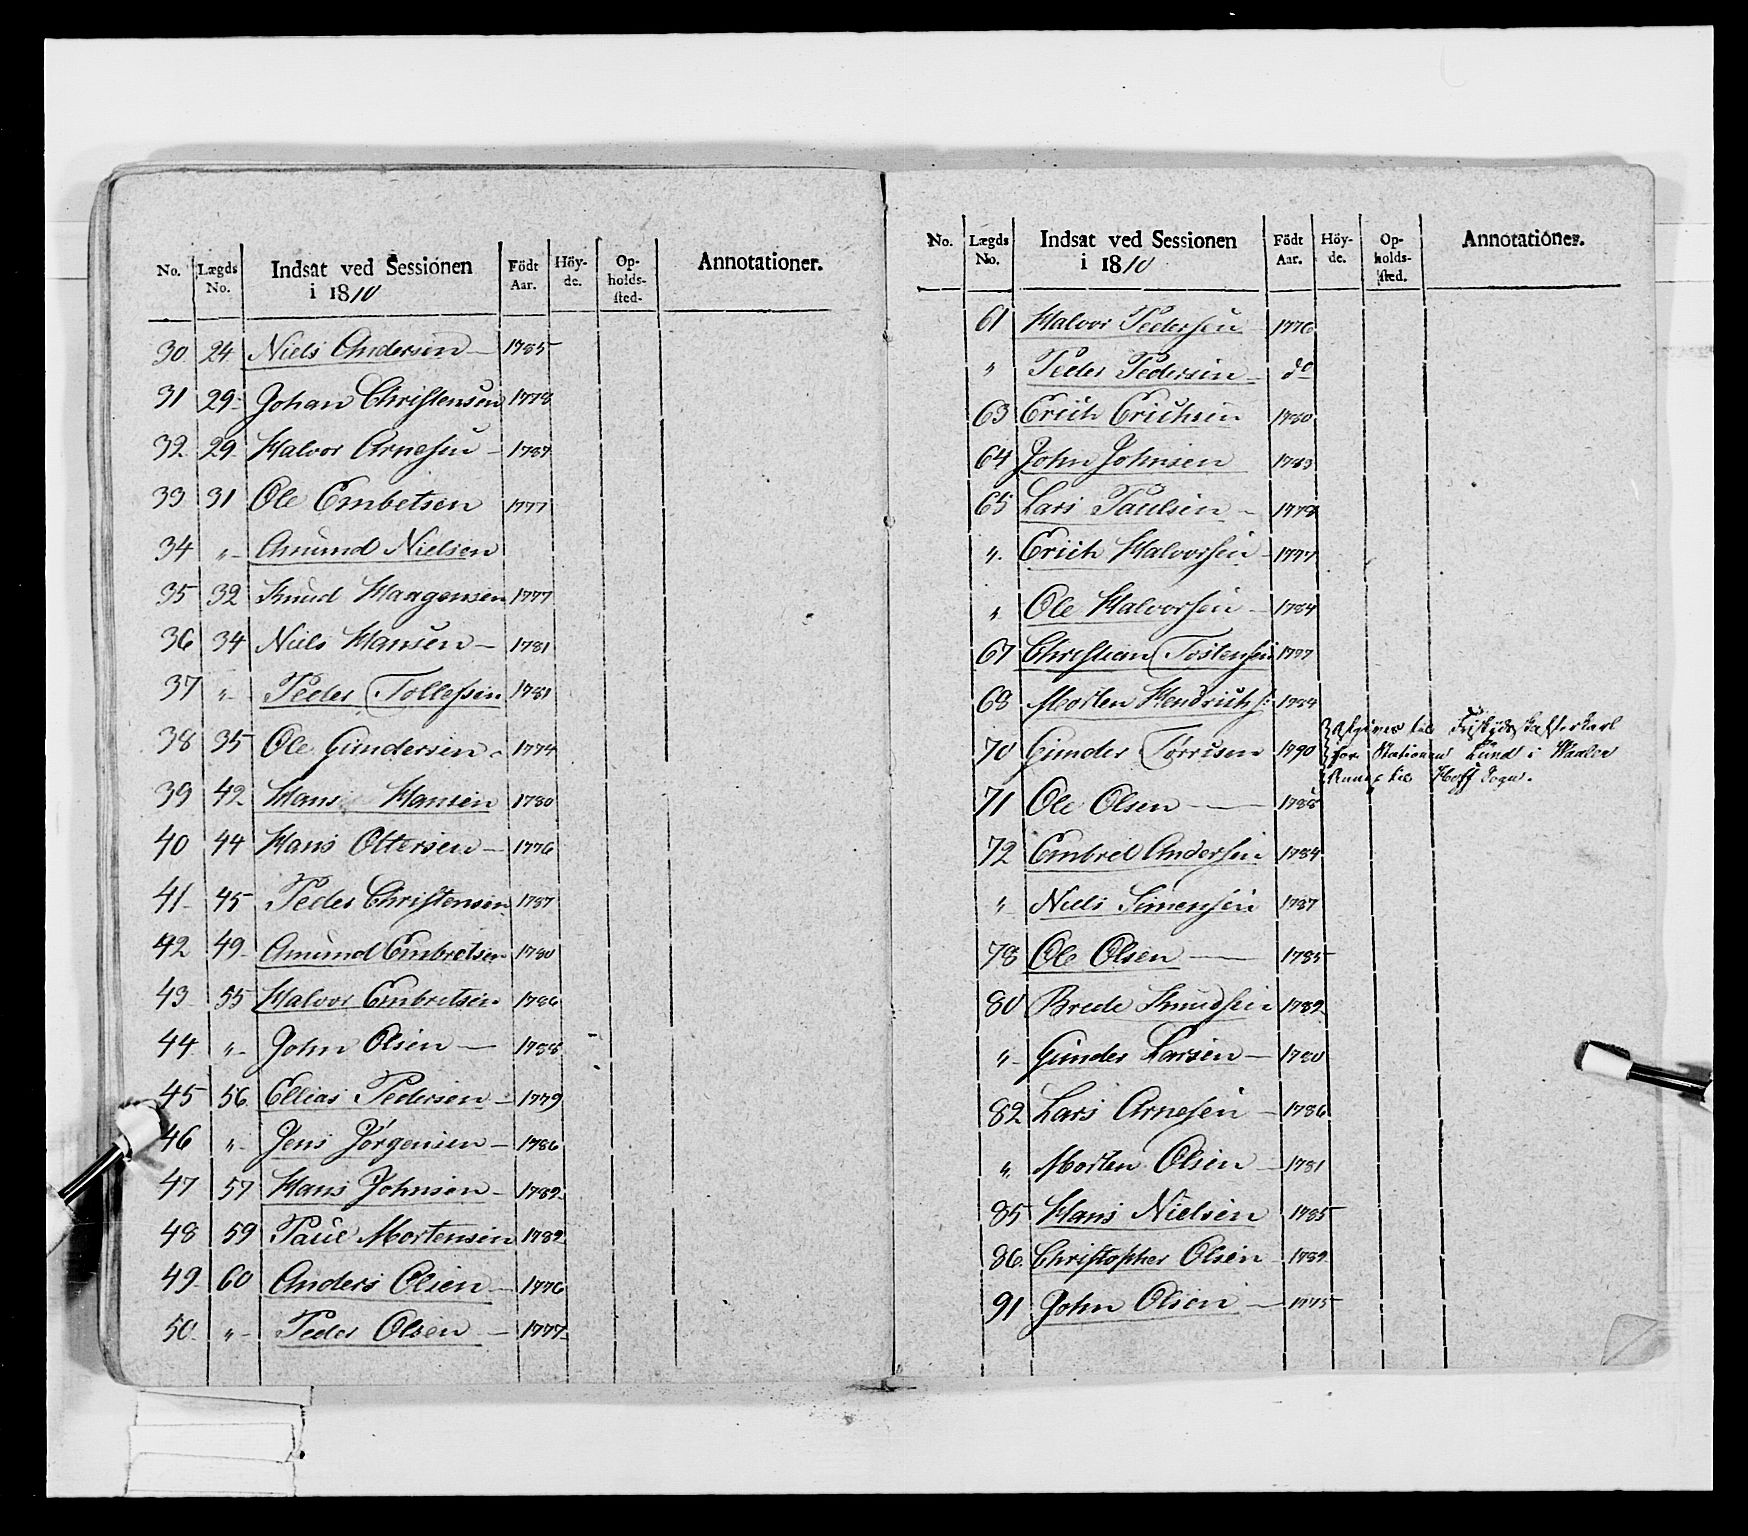 No. Lægds No. Indsat ved Sessionen i 1810 Födt Aar. Höyde. Opholds-sted. Annotationer.
30 24 Niels Andersen — 1785
31 29 Johan Christensen 1778
32 29 Halvor Arnesen — 1787
33 31 Ole Embetsen 1777
34 " Amund Nielsen
35 32 Knud Haagensen 1777
36 34 Niels Hansen — 1781
37 " Peder Tollefsen 1781
38 35 Ole Gundersen 1774
39 42 Hans Hansen 1780
40 44 Hans Ottersen — 1776
41 45 Peder Christensen 1787
42 49 Amund Embretsen 1780
43 55 Halvor Embretsen 1786
44 " John Olsen — 1788
45 56 Ellias Pedersen — 1779
46 " Jens Jörgensen — 1786
47 57 Hans Johnsen — 1782
48 59 Paul Mortensen 1782
49 60 Anders Olsen — 1776
50 " Peder Olsen — 1777
No. Lægds No. Indsat ved Sessionen i 1810 Födt Aar. Höy-de. Op-holds-sted. Annotationer.
61 Halvor Pedersen 1776
" Peder Pedersen do
63 Erich Erichsen 1780
64 John Johnsen 1783
65 Lars Paulsen 1778
" Erich Halvorsen 1777
" Ole Halvorsen 1784
67 Christian Tostensen 1777
68 Morten Hendrichs: 1784
70 Gunder Torrisen 1790 Afgivet til
for Stationen Lund i Waaler
Annex til Hoff Sogn.
71 Ole Olsen — 1788
72 Embret Andersen 1784
" Niels Simensen 1787
78 Ole Olsen — 1785
80 Brede Knudsen 1782
" Gunder Larsen — 1780
82 Lars Arnesen — 1786
" Morten Olsen — 1781
85 Hans Nielsen 1785
86 Christopher Olsen 1782
91 John Olsen — 1775